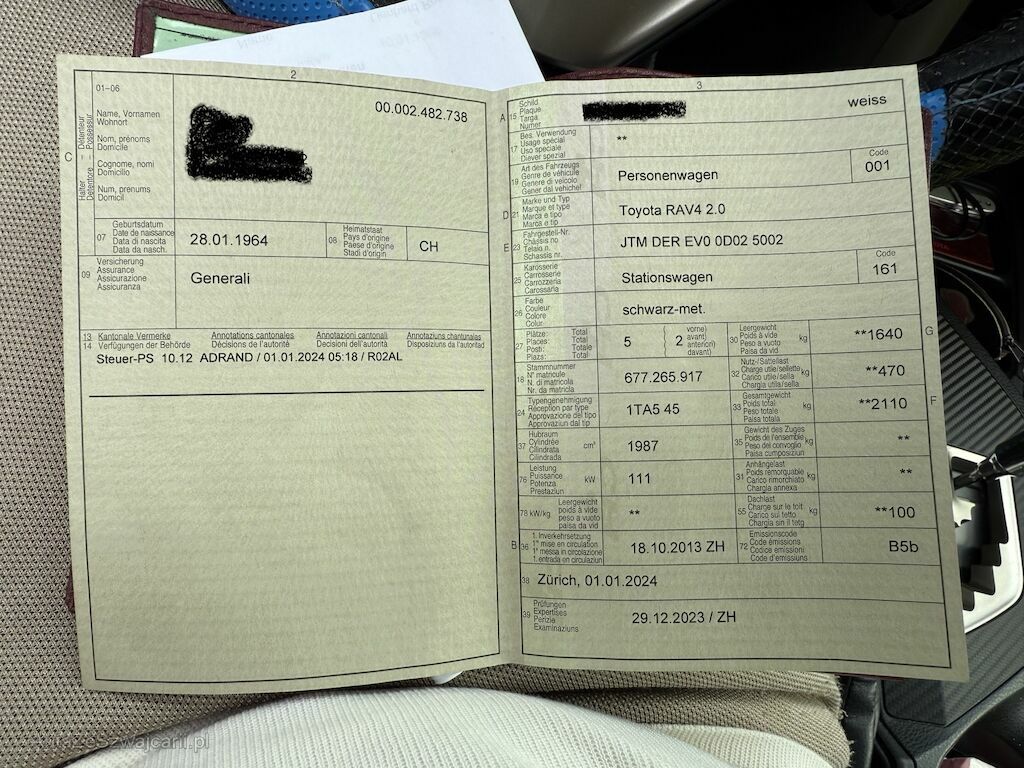 2
01-06
C
Halter – Détenteur
Detentore – Possessur
Name, Vornamen
Wohnort
Nom, prénoms
Domicile
Cognome, nomi
Domicilio
Num, prenums
Domicil
00.002.482.738
07
Geburtsdatum
Date de naissance
Data di nascita
Data da nasch.
28.01.1964
08
Heimatstaat
Pays d'origine
Paese d'origine
Stadi d'origin
CH
09
Versicherung
Assurance
Assicurazione
Assicuranza
Generali
13 Kantonale Vermerke Annotations cantonales Annotazioni cantonali Annotaziuns chantunalas
14 Verfügungen der Behörde Décisions de l'autorité Decisioni dell'autorità Disposiziuns da l'autoritad
Steuer-PS 10.12 ADRAND / 01.01.2024 05:18 / R02AL
3
A 15
Schild
Plaque
Targa
Numer
weiss
17
Bes. Verwendung
Usage spécial
Uso speciale
Diever spezial
**
19
Art des Fahrzeugs
Genre de véhicule
Genere di veicolo
Gener dal vehichel
Personenwagen
Code
001
D 21
Marke und Typ
Marque et type
Marca e tipo
Marca e tip
Toyota RAV4 2.0
E 23
Fahrgestell-Nr.
Châssis no
Telaio n.
Schassis nr.
JTM DER EV0 0D02 5002
25
Karosserie
Carrosserie
Carrozzeria
Carossaria
Stationswagen
Code
161
26
Farbe
Couleur
Colore
Colur
schwarz-met.
27
Plätze: Total
Places: Total
Posti: Totale
Plazs: Total
5
2
vorne)
avant)
anteriori)
davant)
30
Leergewicht
Poids à vide
Peso a vuoto
Paisa da vid
kg
**1640
G
18
Stammnummer
N° matricule
N. di matricola
Nr. da matricla
677.265.917
32
Nutz-/Sattellast
Charge utile/sellette
Carico utile/sella
Chargia utila/sella
kg
**470
24
Typengenehmigung
Réception par type
Approvazione del tipo
Approvaziun dal tip
1TA5 45
33
Gesamtgewicht
Poids total
Peso totale
Paisa totala
kg
**2110
F
37
Hubraum
Cylindrée
Cilindrata
Cilindrada
cm³
1987
35
Gewicht des Zuges
Poids de l'ensemble
Peso del convoglio
Paisa cumposiziun
kg
**
76
Leistung
Puissance
Potenza
Prestaziun
kW
111
31
Anhängelast
Poids remorquable
Carico rimorchiato
Chargia annexa
kg
**
78 kW/kg
Leergewicht
poids à vide
peso a vuoto
paisa da vid
**
55
Dachlast
Charge sur le toit
Carico sul tetto
Chargia sin il tetg
kg
**100
B 36
1. Inverkehrsetzung
1re mise en circulation
1a messa in circolazione
1. entrada en circulaziun
18.10.2013 ZH
72
Emissionscode
Code émissions
Codice emissioni
Code d'emissiuns
B5b
38
Zürich, 01.01.2024
39
Prüfungen
Expertises
Perizie
Examinaziuns
29.12.2023 / ZH